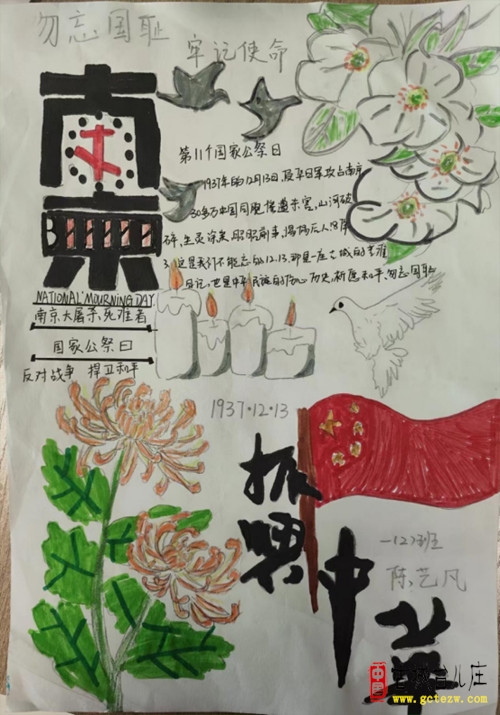 勿忘国耻
牢记使命
南京
第11个国家公祭日
1937年的12月13日,侵华日军攻占南京
30多万中国同胞惨遭杀害,山河破
碎,生灵涂炭
这是我们不能忘的12.13,那是一座古城的苦难
日记,也是中华民族的伤心历史,祈愿和平,勿忘国耻
NATIONAL MOURNING DAY
南京大屠杀死难者
国家公祭日
反对战争 捍卫和平
1937·12·13
振兴
中华
一12班
陈艺凡
www.gctezw.com